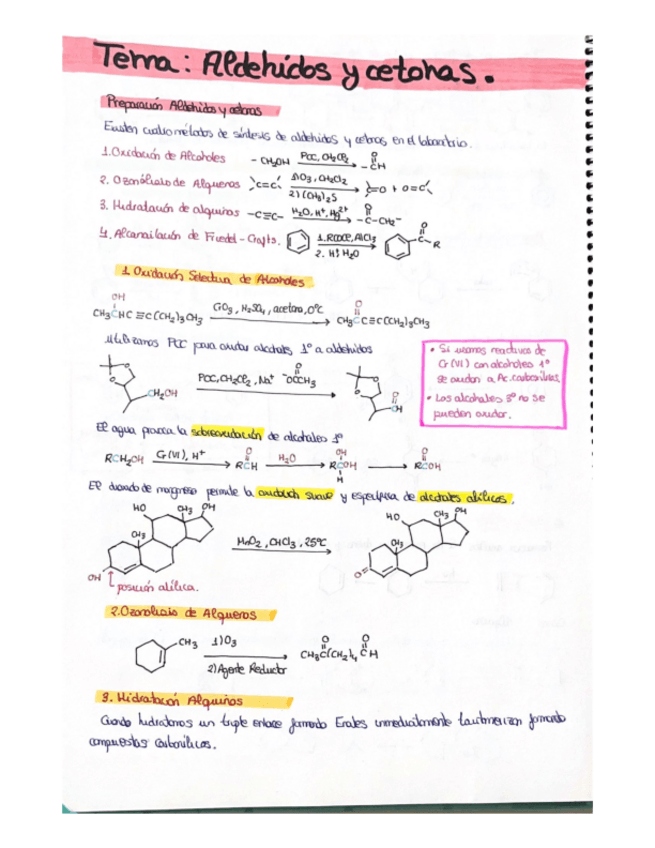 Tema: Aldehidos y cetonas.
Preparación Aldehidos y cetonas
Existen cuatro métodos de síntesis de aldehidos y cetonas en el laboratorio.
1. Oxidación de Alcoholes -CH₂OH PCC, CH₂Cl₂ O -CH
2. Ozonólisis de Alquenos >C=C< 1)O₃, CH₂Cl₂ 2)(CH₃)₂S >C=O + O=C<
3. Hidratación de alquinos -C≡C- H₂O, H⁺, Hg²⁺ O -C-CH₂-
4. Alcanoilación de Friedel-Crafts. 1. RCOCl, AlCl₃ 2. H⁺, H₂O O C R
1. Oxidación Selectiva de Alcoholes
OH
CH₃CHC≡C(CH₂)₃CH₃ CrO₃, H₂SO₄, acetona, 0°C O CH₃CC≡C(CH₂)₃CH₃
Utilizamos PCC para oxidar alcoholes 1° a aldehidos
O O CH₂OH PCC, CH₂Cl₂, Na⁺ ⁻OCCH₃ O O O O CH
• Si usamos reactivos de
Cr(VI) con alcoholes 1°
se oxidan a Ac. carboxílicos
• Los alcoholes 3° no se
pueden oxidar.
El agua provoca la sobreoxidación de alcoholes 1°
RCH₂OH Cr(VI), H⁺ O RCH H₂O OH RCOH H O RCOH
El dioxido de manganeso permite la oxidación suave y específica de alcoholes alílicos.
HO CH₃ OH CH₃ OH
MnO₂, CHCl₃, 25°C
HO CH₃ OH CH₃ O
posición alílica.
2. Ozonolisis de Alquenos
CH₃ 1)O₃ 2)Agente Reductor O O CH₃C(CH₂)₄CH
3. Hidratación Alquinos
Cuando hidratamos un triple enlace formando Enoles inmediatamente tautomerizan formando
compuestos carbonílicos.